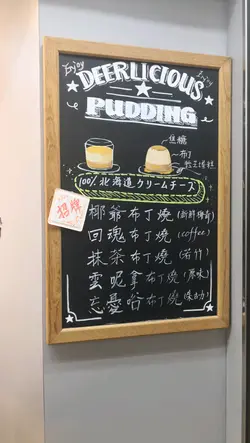 Enjoy
Enjoy
DEERLICIOUS
PUDDING
焦糖
布丁
100% 北海道クリームチーズ
招牌
椰爺布丁燒
回魂布丁燒 (coffee)
抹茶布丁燒 (若竹)
雲呢拿布丁燒 (原味)
忘憂谷布丁燒